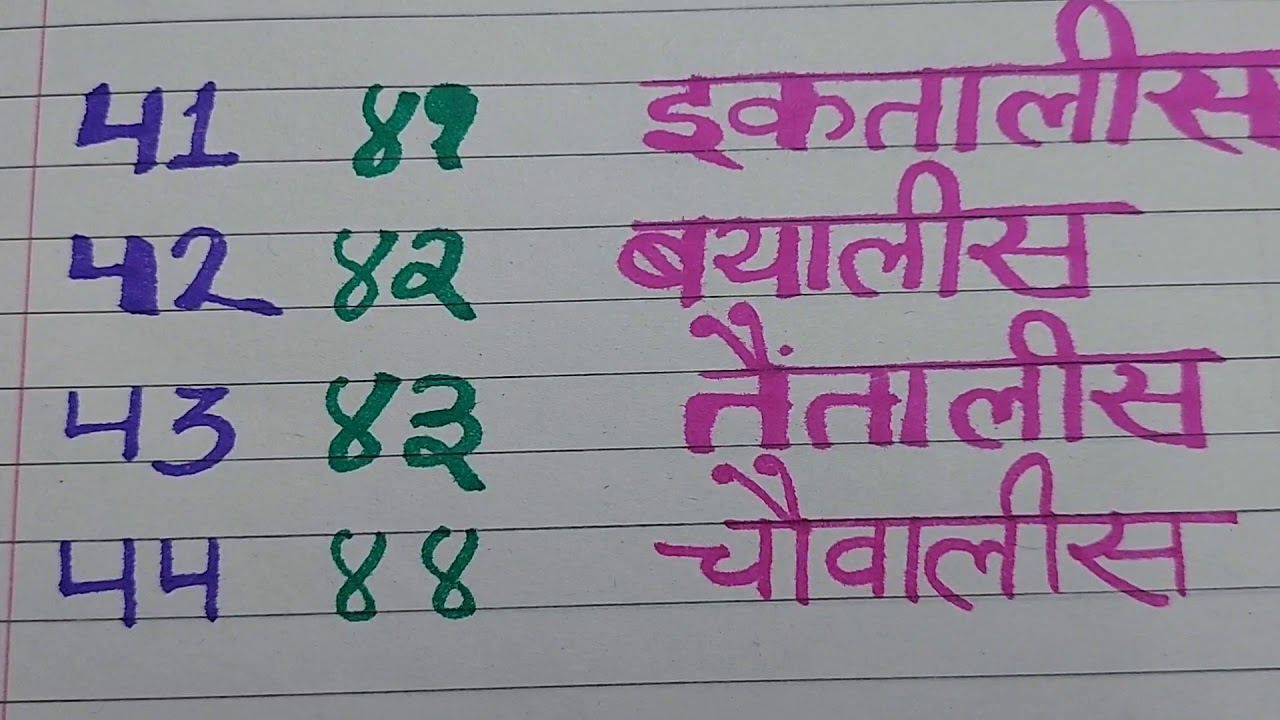 41 ४१ इकतालीस
42 ४२ बयालीस
43 ४३ तैंतालीस
44 ४४ चौवालीस